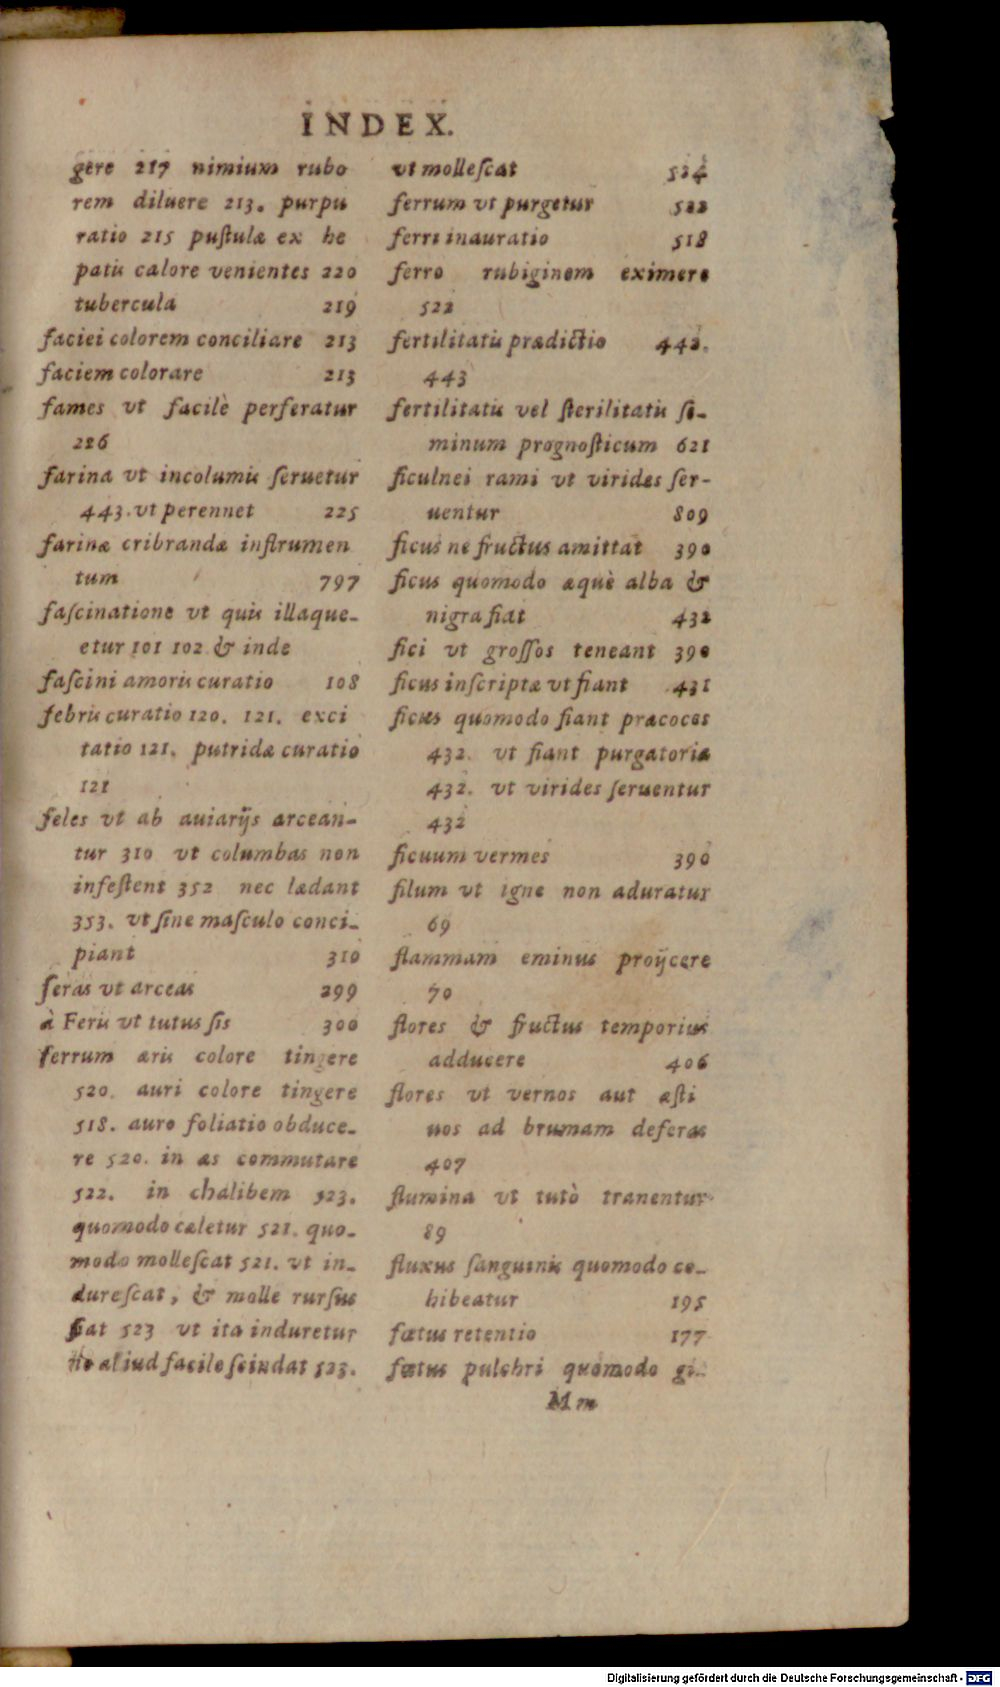 INDEX.
gere 217 nimium rubo
rem diluere 213. purpu
ratio 215 puſtulæ ex he
patis calore venientes 220
tubercula 219
faciei colorem conciliare 213
faciem colorare 213
fames vt facilè perferatur
226
farina vt incolumis ſeruetur
443. vt perennet 225
farinæ cribrandæ inſtrumen
tum 797
faſcinatione vt quis illaque-
etur 101 102 & inde
faſcini amoris curatio 108
febris curatio 120. 121. exci
tatio 121. putridæ curatio
121
feles vt ab auiarijs arcean-
tur 310 vt columbas non
infeſtent 352 nec lædant
353. vt ſine maſculo conci-
piant 310
feras vt arceas 299
à Feris vt tutus ſis 300
ferrum æris colore tingere
520. auri colore tingere
518. auro foliatio obduce-
re 520. in æs commutare
522. in chalibem 523.
quomodo cæletur 521. quo-
modo molleſcat 521. vt in-
dureſcat, & molle rurſus
fiat 523 vt ita induretur
vt aliud facile ſcindat 523.
vt molleſcat 524
ferrum vt purgetur 522
ferri inauratio 518
ferro rubiginem eximere
522
fertilitatis prædictio 442.
443
fertilitatis vel ſterilitatis ſe-
minum prognoſticum 621
ficulnei rami vt virides ſer-
uentur 809
ficus ne fructus amittat 390
ficus quomodo æquè alba &
nigra fiat 432
fici vt groſſos teneant 390
ficus inſcriptæ vt fiant 431
ficus quomodo fiant præcoces
432. vt fiant purgatoriæ
432. vt virides ſeruentur
432
ficuum vermes 390
filum vt igne non aduratur
69
flammam eminus proijcere
70
flores & fructus temporius
adducere 406
flores vt vernos aut æſti
uos ad brumam deferas
407
flumina vt tutò tranentur
89
fluxus ſanguinis quomodo co-
hibeatur 195
fœtus retentio 177
fœtus pulchri quomodo gi-
Mm
Digitalisierung gefördert durch die Deutsche Forschungsgemeinschaft - DFG